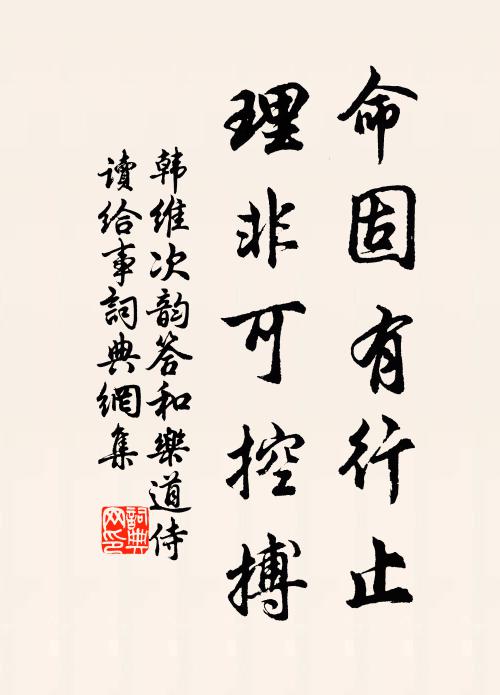 命固有行止
理非可控搏
韩维次韵答和樂道侍
讀给事詞典網集
詞典
网印